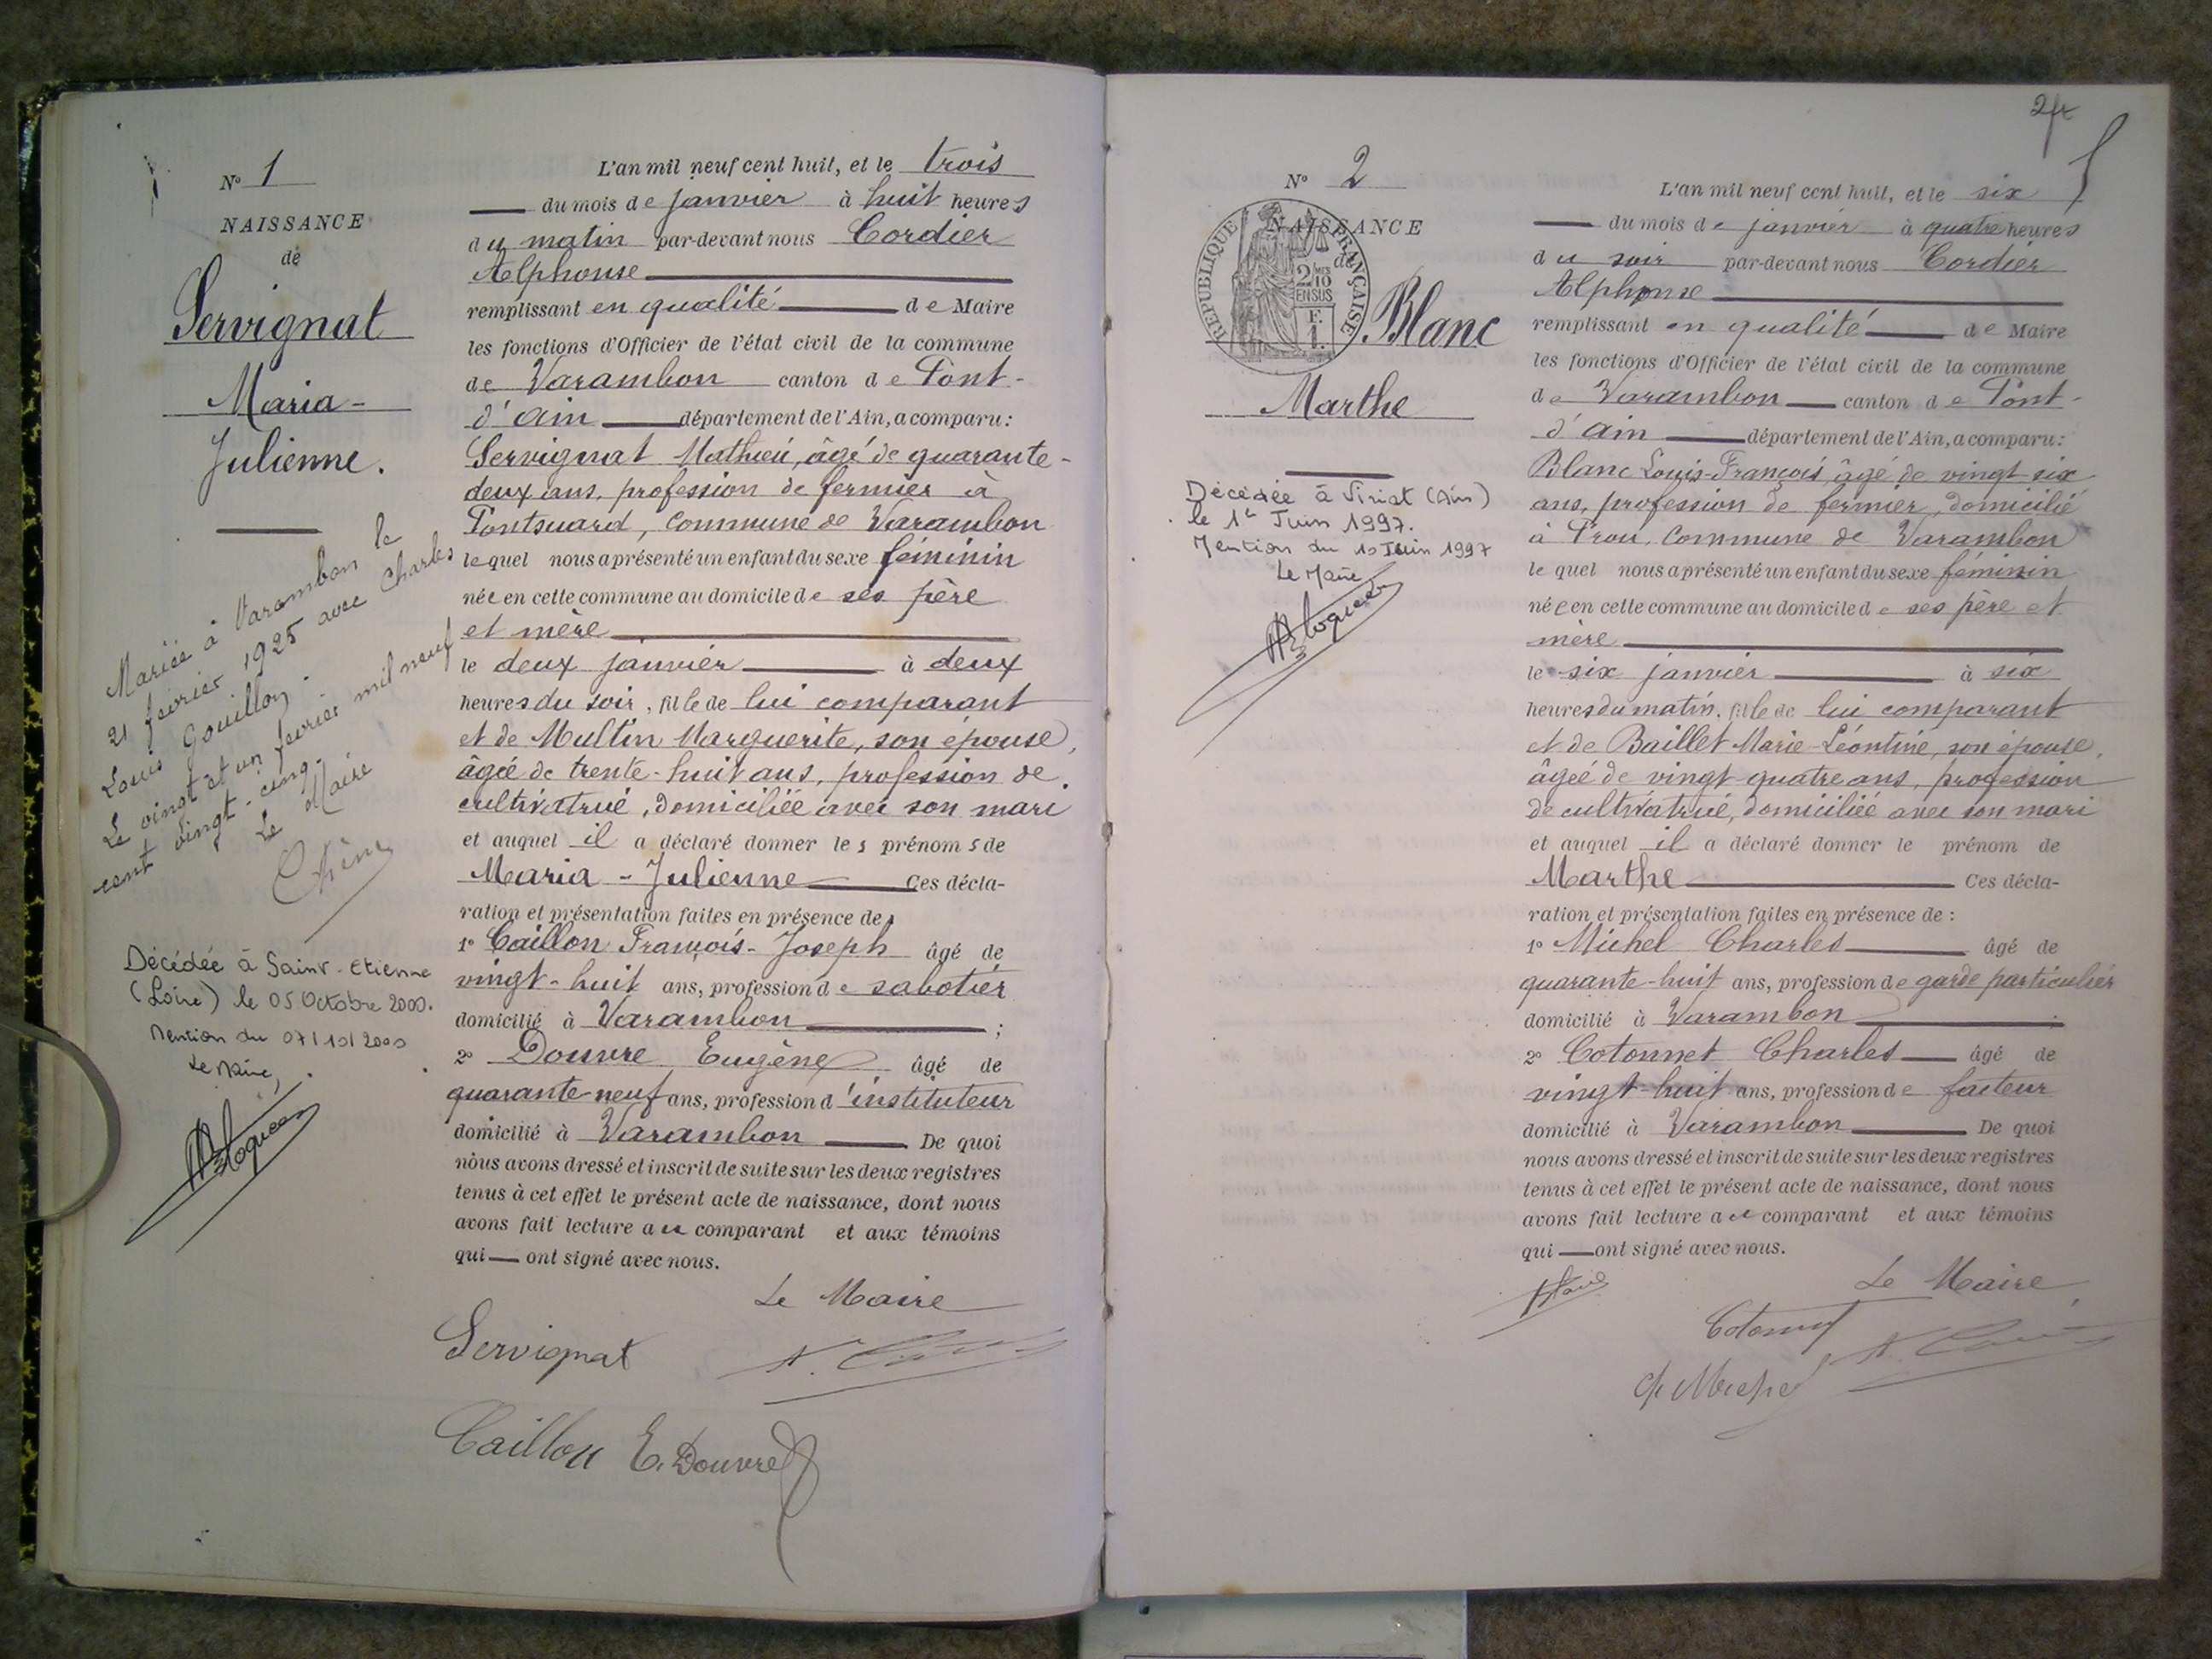 N° 1
NAISSANCE
de
Servignat
Maria-
Julienne.
Mariée à Varambon le
21 février 1925 avec Charles
Louis Gouillon.
Le vingt et un février mil neuf
cent vingt-cinq.
Le Maire
Décédée à Saint-Etienne
(Loire) le 05 Octobre 2000.
Mention du 07/10/2000
Le Maire,
L'an mil neuf cent huit, et le trois
du mois de janvier à huit heures
du matin par-devant nous Cordier
Alphonse
remplissant en qualité de Maire
les fonctions d'Officier de l'état civil de la commune
de Varambon canton de Pont-
d'Ain département de l'Ain, a comparu:
Servignat Mathieu, âgé de quarante-
deux ans, profession de fermier à
Pontsuard, commune de Varambon
lequel nous a présenté un enfant du sexe féminin
née en cette commune au domicile de ses père
et mère
le deux janvier à deux
heures du soir, fille de lui comparant
et de Multin Marguerite, son épouse,
âgée de trente-huit ans, profession de
cultivatrice, domiciliée avec son mari
et auquel il a déclaré donner les prénoms de
Maria-Julienne Ces décla-
ration et présentation faites en présence de:
1° Caillon François-Joseph âgé de
vingt-huit ans, profession de sabotier
domicilié à Varambon ;
2° Douvre Eugène âgé de
quarante-neuf ans, profession d'instituteur
domicilié à Varambon De quoi
nous avons dressé et inscrit de suite sur les deux registres
tenus à cet effet le présent acte de naissance, dont nous
avons fait lecture au comparant et aux témoins
qui ont signé avec nous.
Le Maire
Servignat
Caillon E. Douvre
2
N° 2
NAISSANCE
de
RÉPUBLIQUE FRANÇAISE
2/10
EN SUS
F.
1.
Blanc
Marthe
Décédée à Viriat (Ain)
le 1er Juin 1997.
Mention du 10 Juin 1997
Le Maire
L'an mil neuf cent huit, et le six
du mois de janvier à quatre heures
du soir par-devant nous Cordier
Alphonse
remplissant en qualité de Maire
les fonctions d'Officier de l'état civil de la commune
de Varambon canton de Pont-
d'Ain département de l'Ain, a comparu:
Blanc Louis-François âgé de vingt-six
ans, profession de fermier, domicilié
à Prou, commune de Varambon
lequel nous a présenté un enfant du sexe féminin
née en cette commune au domicile de ses père et
mère
le six janvier à six
heures du matin, fille de lui comparant
et de Baillet Marie-Léontine, son épouse,
âgée de vingt-quatre ans, profession
de cultivatrice, domiciliée avec son mari
et auquel il a déclaré donner le prénom de
Marthe Ces décla-
ration et présentation faites en présence de :
1° Michel Charles âgé de
quarante-huit ans, profession de garde particulier
domicilié à Varambon ;
2° Cotonnet Charles âgé de
vingt-huit ans, profession de facteur
domicilié à Varambon De quoi
nous avons dressé et inscrit de suite sur les deux registres
tenus à cet effet le présent acte de naissance, dont nous
avons fait lecture au comparant et aux témoins
qui ont signé avec nous.
Le Maire
Blanc
Cotonnet
Ch Michel